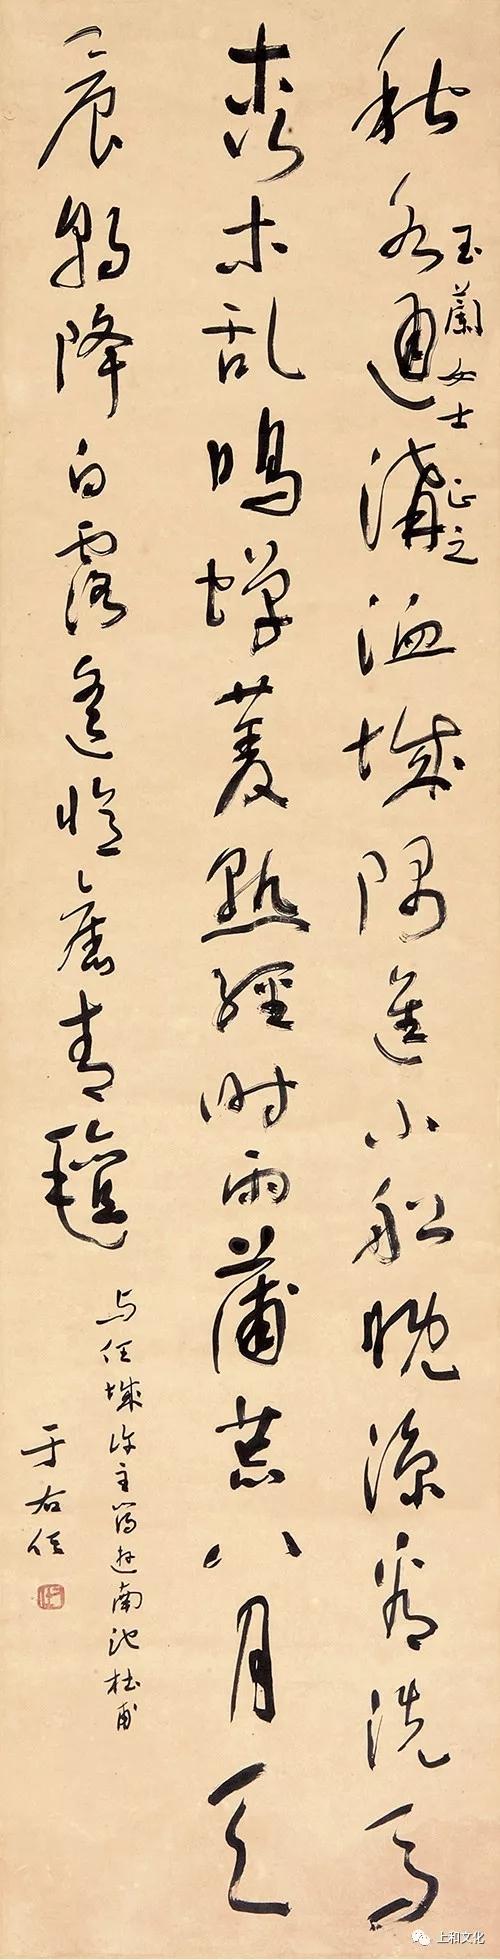 玉蘭女士正之
秋水通溝洫城隅進小船晚涼看洗馬
森木乱鳴蟬菱熟經时雨蒲荒八月天
晨朝降白露遥憶舊青氈
与任城许主簿遊南池杜甫
于右任
上和文化